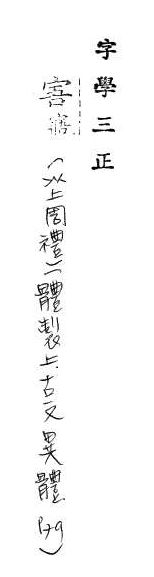 字學三正
(以上周禮)(體製上.古文異體